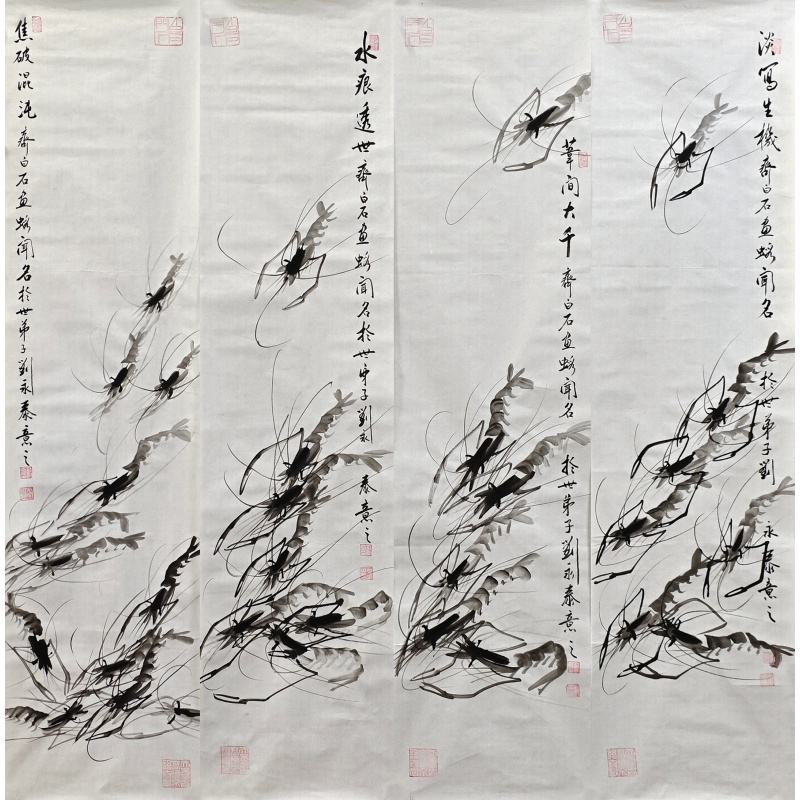 淡寫生機齊白石画蝦聞名於世弟子劉永泰意之
葦间大千齊白石画蝦聞名於世弟子劉永泰意之
水痕透世齊白石画蝦聞名於世弟子劉永泰意之
焦破混沌齊白石画蝦聞名於世弟子劉永泰意之